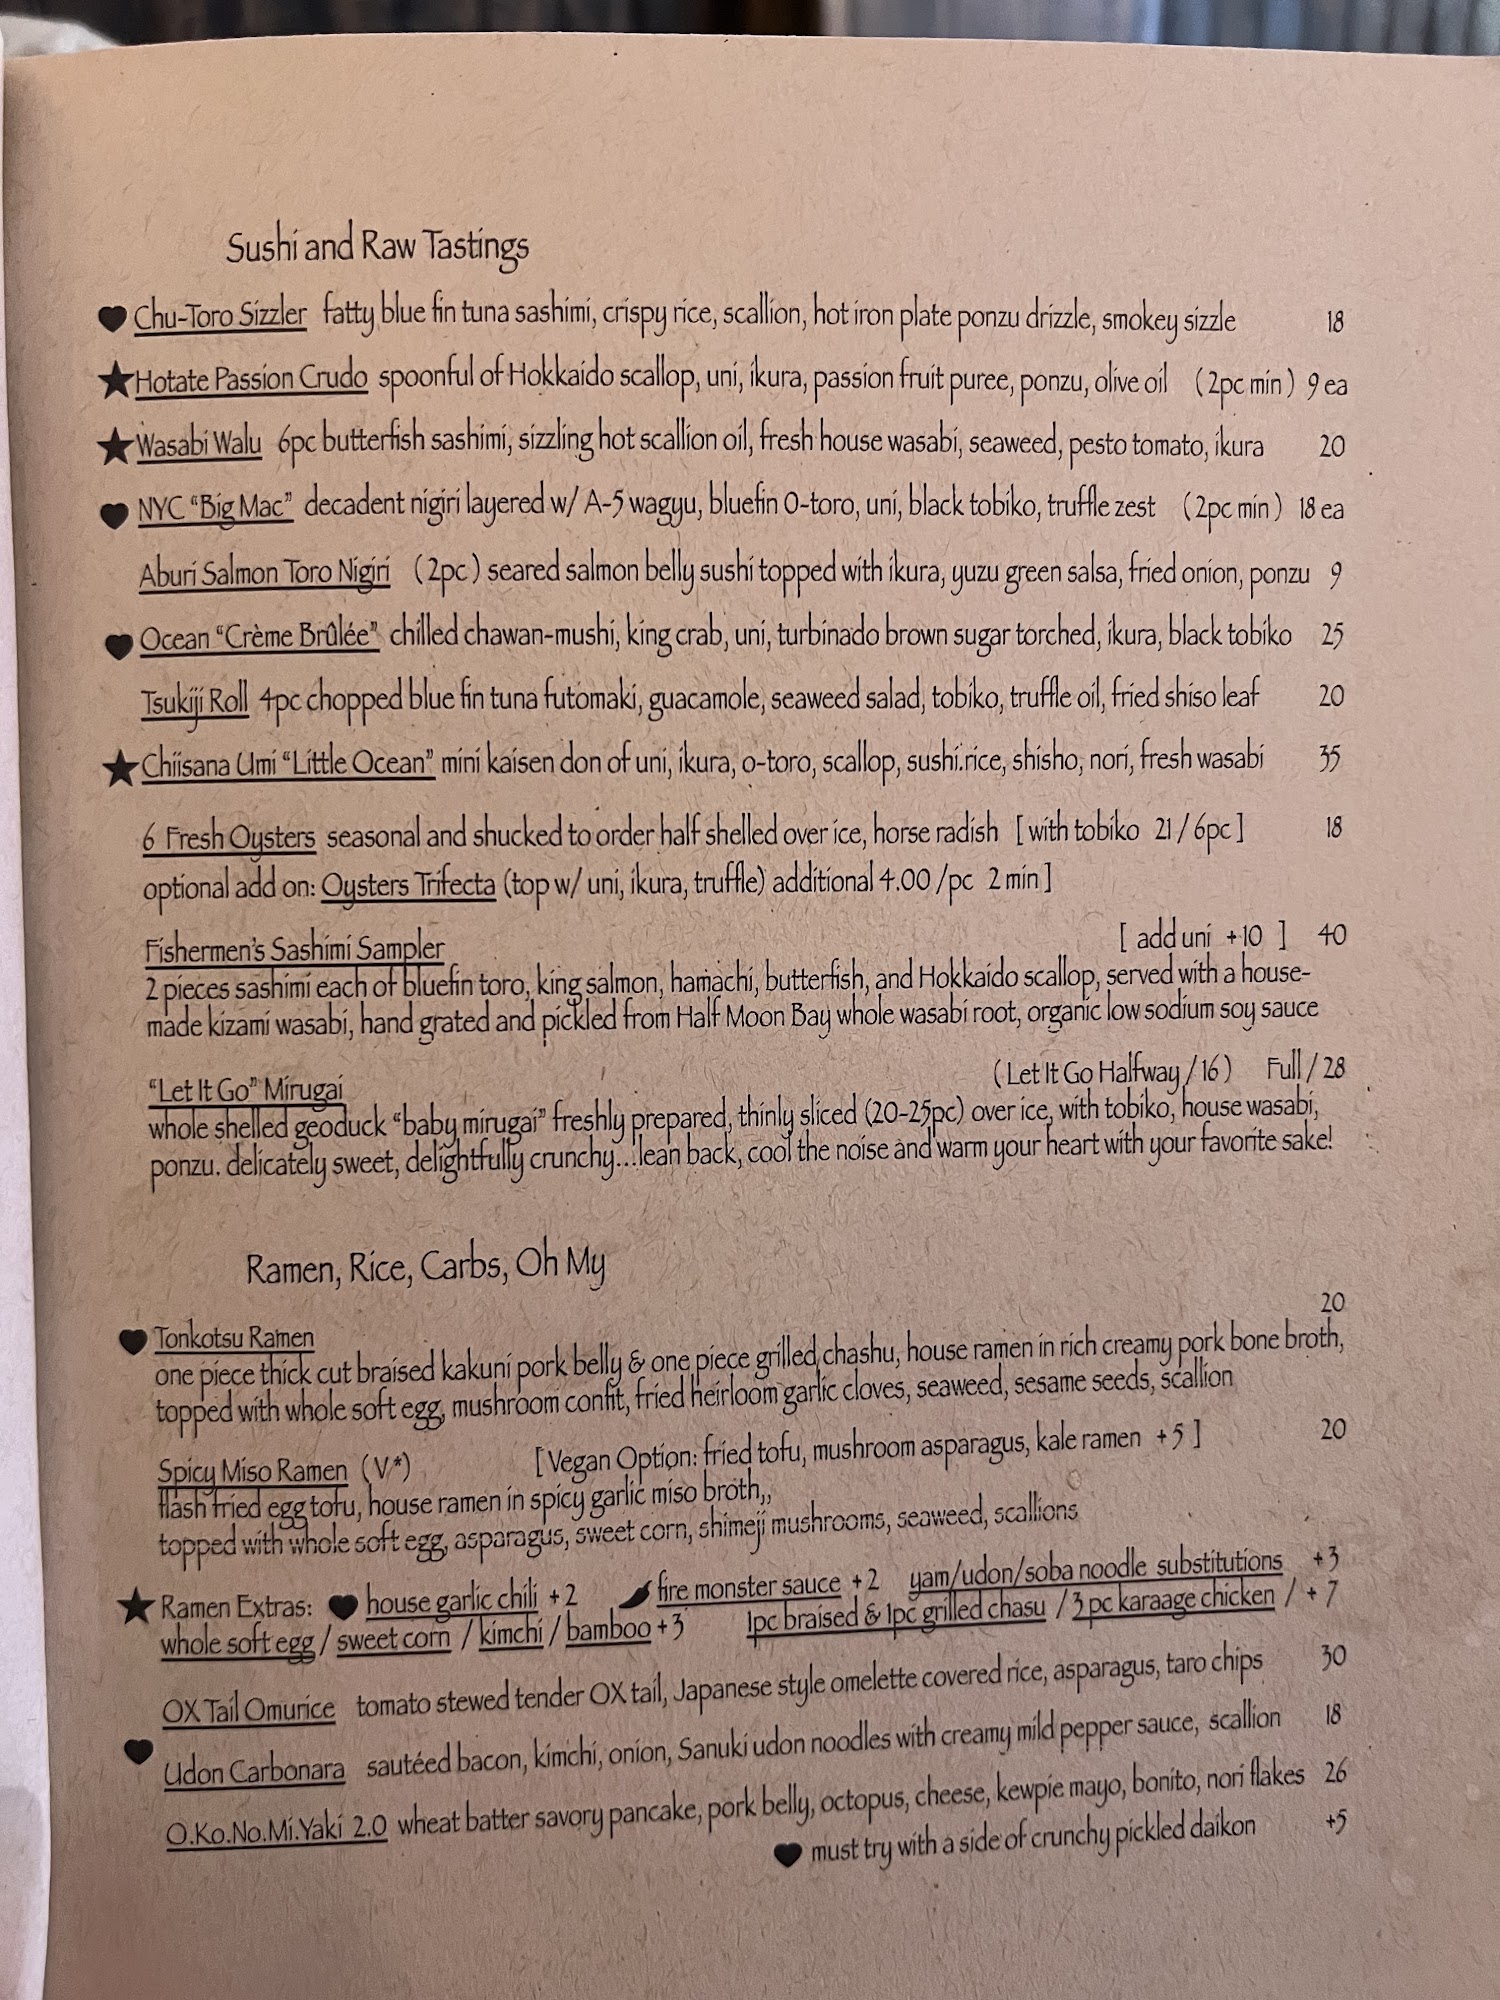 Sushi and Raw Tastings
Chu-Toro Sizzler fatty blue fin tuna sashimi, crispy rice, scallion, hot iron plate ponzu drizzle, smokey sizzle 18
Hotate Passion Crudo spoonful of Hokkaido scallop, uni, ikura, passion fruit puree, ponzu, olive oil (2pc min) 9 ea
Wasabi Walu 6pc butterfish sashimi, sizzling hot scallion oil, fresh house wasabi, seaweed, pesto tomato, ikura 20
NYC “Big Mac” decadent nigiri layered w/ A-5 wagyu, bluefin O-toro, uni, black tobiko, truffle zest (2pc min) 18 ea
Aburi Salmon Toro Nigiri (2pc) seared salmon belly sushi topped with ikura, yuzu green salsa, fried onion, ponzu 9
Ocean “Crème Brûlée” chilled chawan-mushi, king crab, uni, turbinado brown sugar torched, ikura, black tobiko 25
Tsukiji Roll 4pc chopped blue fin tuna futomaki, guacamole, seaweed salad, tobiko, truffle oil, fried shiso leaf 20
Chiisana Umi “Little Ocean” mini kaisen don of uni, ikura, o-toro, scallop, sushi.rice, shisho, nori, fresh wasabi 35
6 Fresh Oysters seasonal and shucked to order half shelled over ice, horse radish [with tobiko 21/6pc] 18
optional add on: Oysters Trifecta (top w/ uni, ikura, truffle) additional 4.00/pc 2 min]
Fishermen's Sashimi Sampler [ add uni +10 ] 40
2 pieces sashimi each of bluefin toro, king salmon, hamachi, butterfish, and Hokkaido scallop, served with a house-
made kizami wasabi, hand grated and pickled from Half Moon Bay whole wasabi root, organic low sodium soy sauce
“Let It Go” Mirugai (Let It Go Halfway/16) Full/28
whole shelled geoduck “baby mirugai” freshly prepared, thinly sliced (20-25pc) over ice, with tobiko, house wasabi,
ponzu. delicately sweet, delightfully crunchy...lean back, cool the noise and warm your heart with your favorite sake!
Ramen, Rice, Carbs, Oh My
Tonkotsu Ramen 20
one piece thick cut braised kakuni pork belly & one piece grilled chashu, house ramen in rich creamy pork bone broth,
topped with whole soft egg, mushroom confit, fried heirloom garlic cloves, seaweed, sesame seeds, scallion
Spicy Miso Ramen (V*) [Vegan Option: fried tofu, mushroom asparagus, kale ramen +5] 20
flash fried egg tofu, house ramen in spicy garlic miso broth,,
topped with whole soft egg, asparagus, sweet corn, shimeji mushrooms, seaweed, scallions
Ramen Extras: house garlic chili +2 fire monster sauce +2 yam/udon/soba noodle substitutions +3
whole soft egg / sweet corn / kimchi / bamboo +3 1pc braised & 1pc grilled chasu / 3 pc karaage chicken / +7
OX Tail Omurice tomato stewed tender OX tail, Japanese style omelette covered rice, asparagus, taro chips 30
Udon Carbonara sautéed bacon, kimchi, onion, Sanuki udon noodles with creamy mild pepper sauce, scallion 18
O.Ko.No.Mi.Yaki 2.0 wheat batter savory pancake, pork belly, octopus, cheese, kewpie mayo, bonito, nori flakes 26
must try with a side of crunchy pickled daikon +5